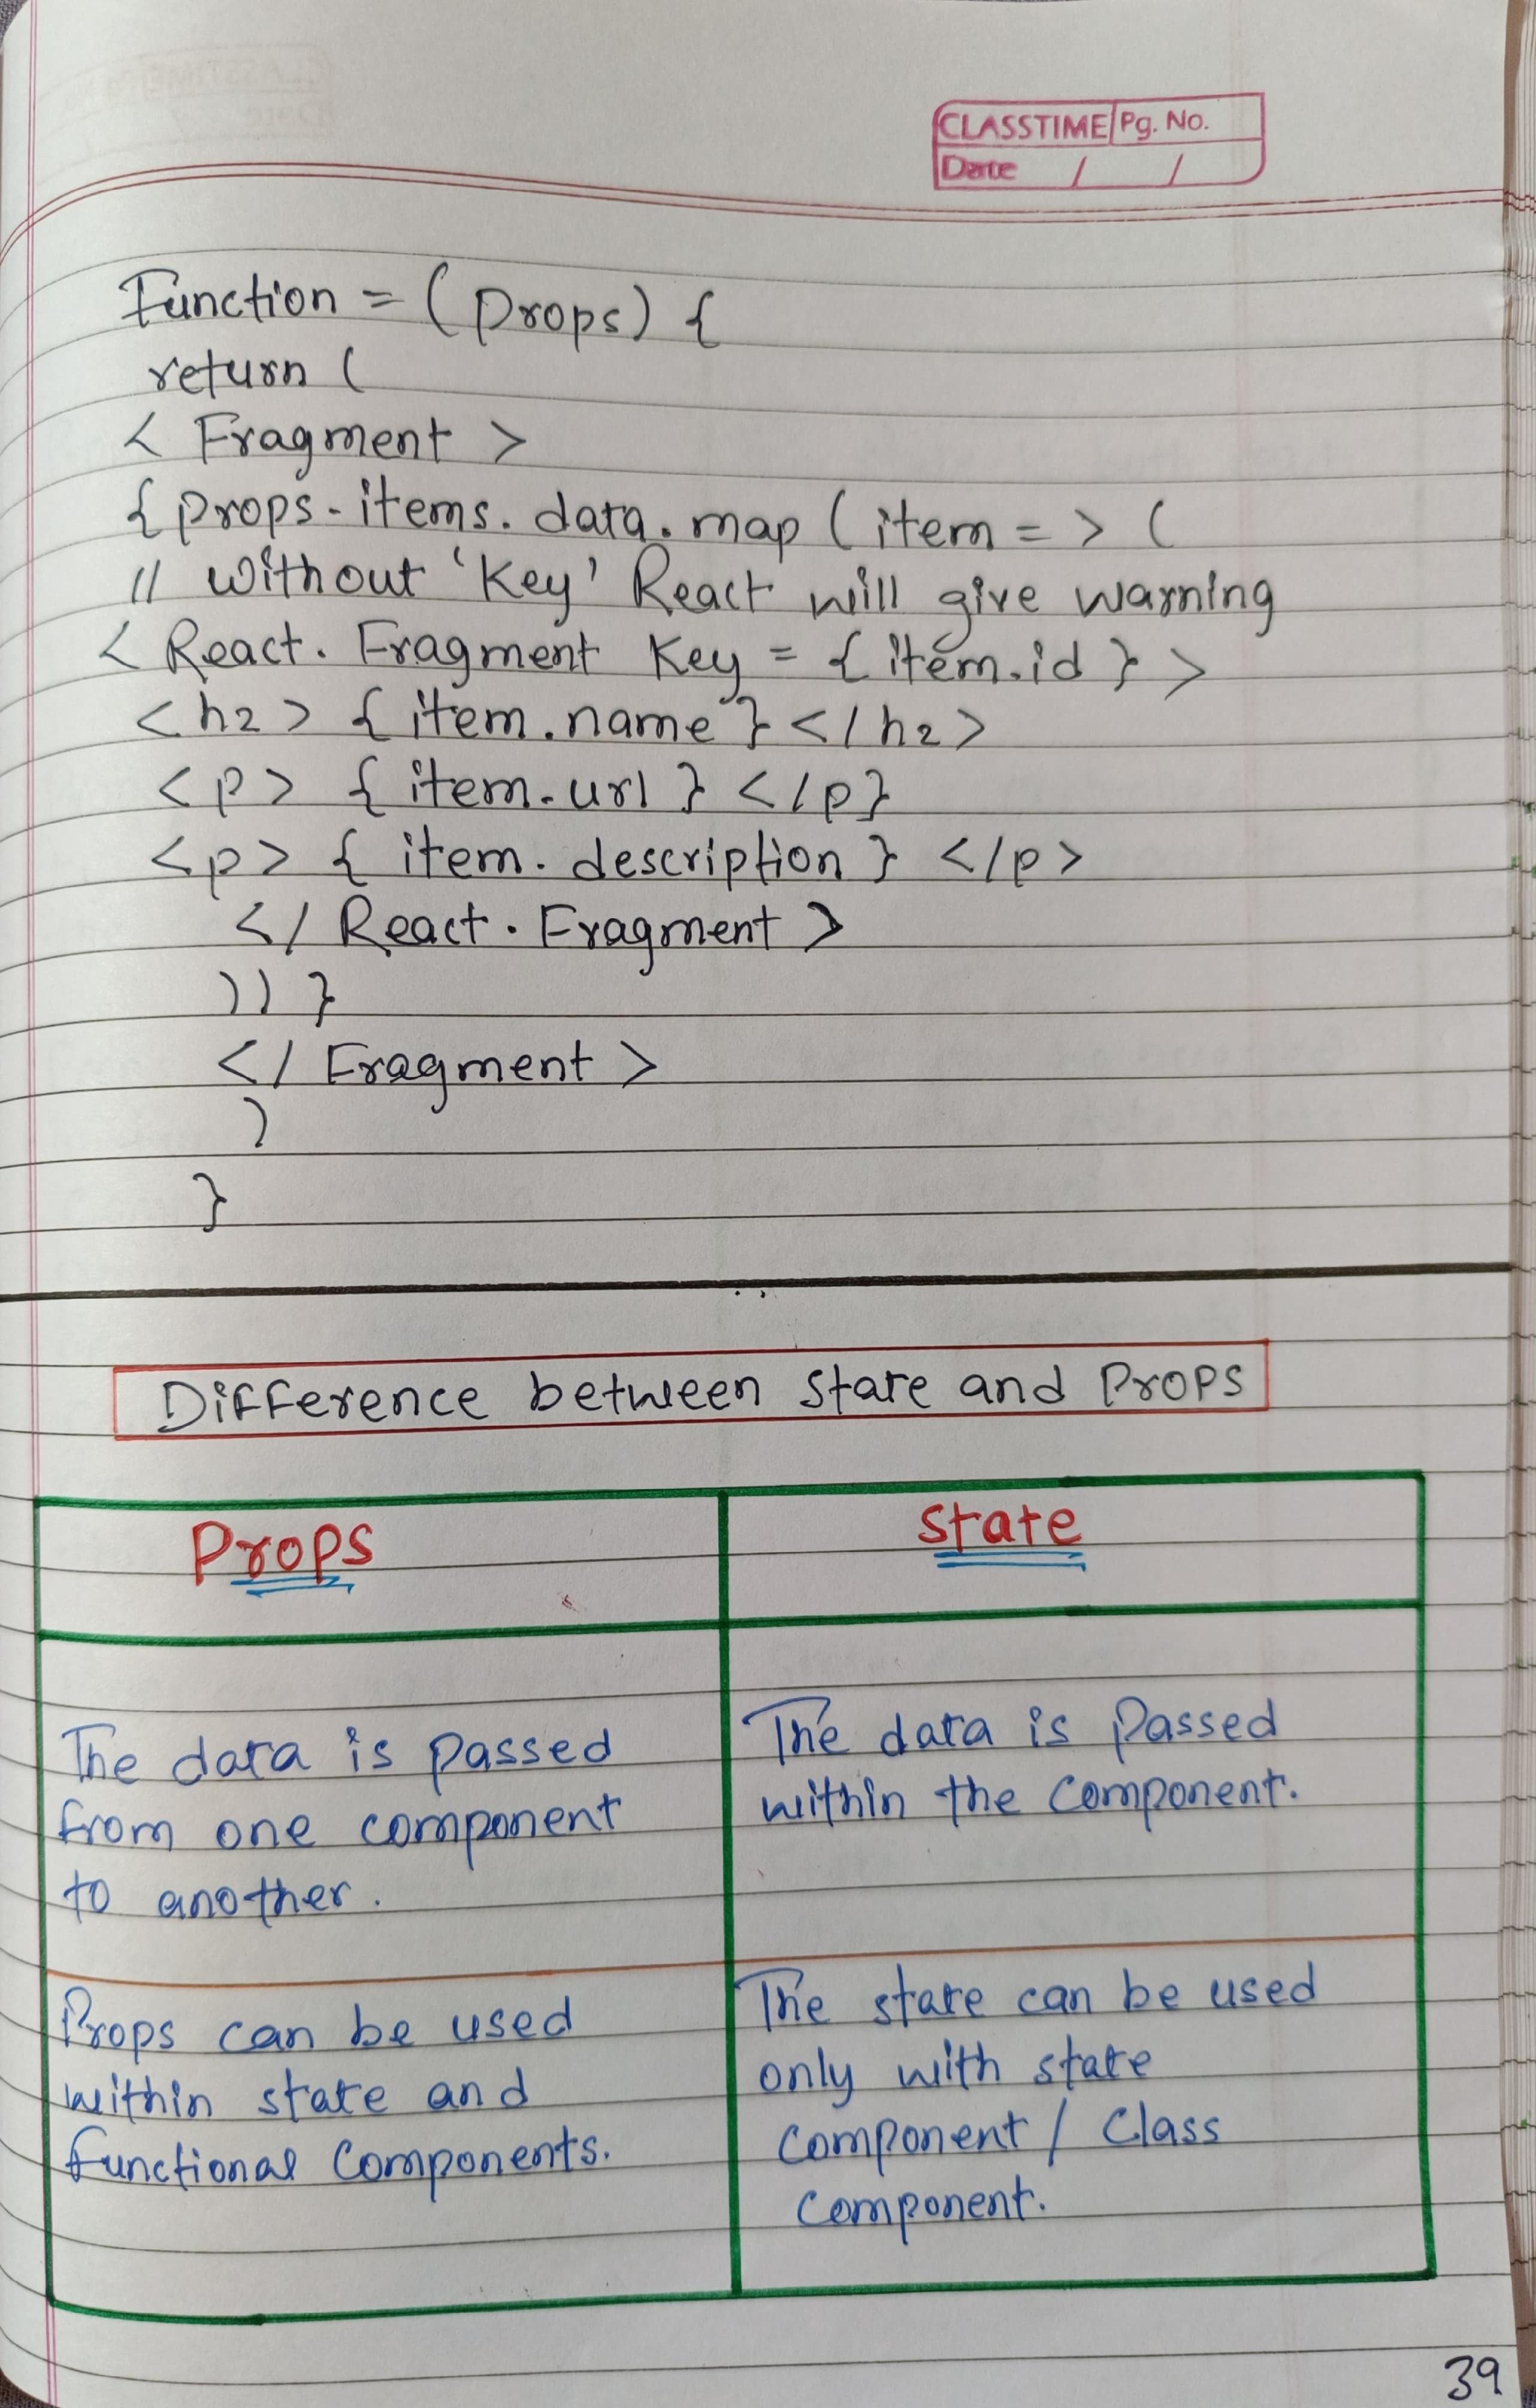 CLASSTIME Pg. No.
Date / /
Function = (props) {
return (
< Fragment >
{ props-items. data. map ( item = > (
// without 'Key' React will give warning
< React. Fragment Key = { item.id } >
< h2 > { item.name } </ h2 >
< p > { item.url } </p}
<p> { item. description } </p>
</ React. Fragment >
)) }
</ Fragment >
)
}
Difference between State and Props
Props
State
The data is passed
from one component
to another.
The data is passed
within the component.
Props can be used
within state and
functional components.
The state can be used
only with state
component / Class
component.
39